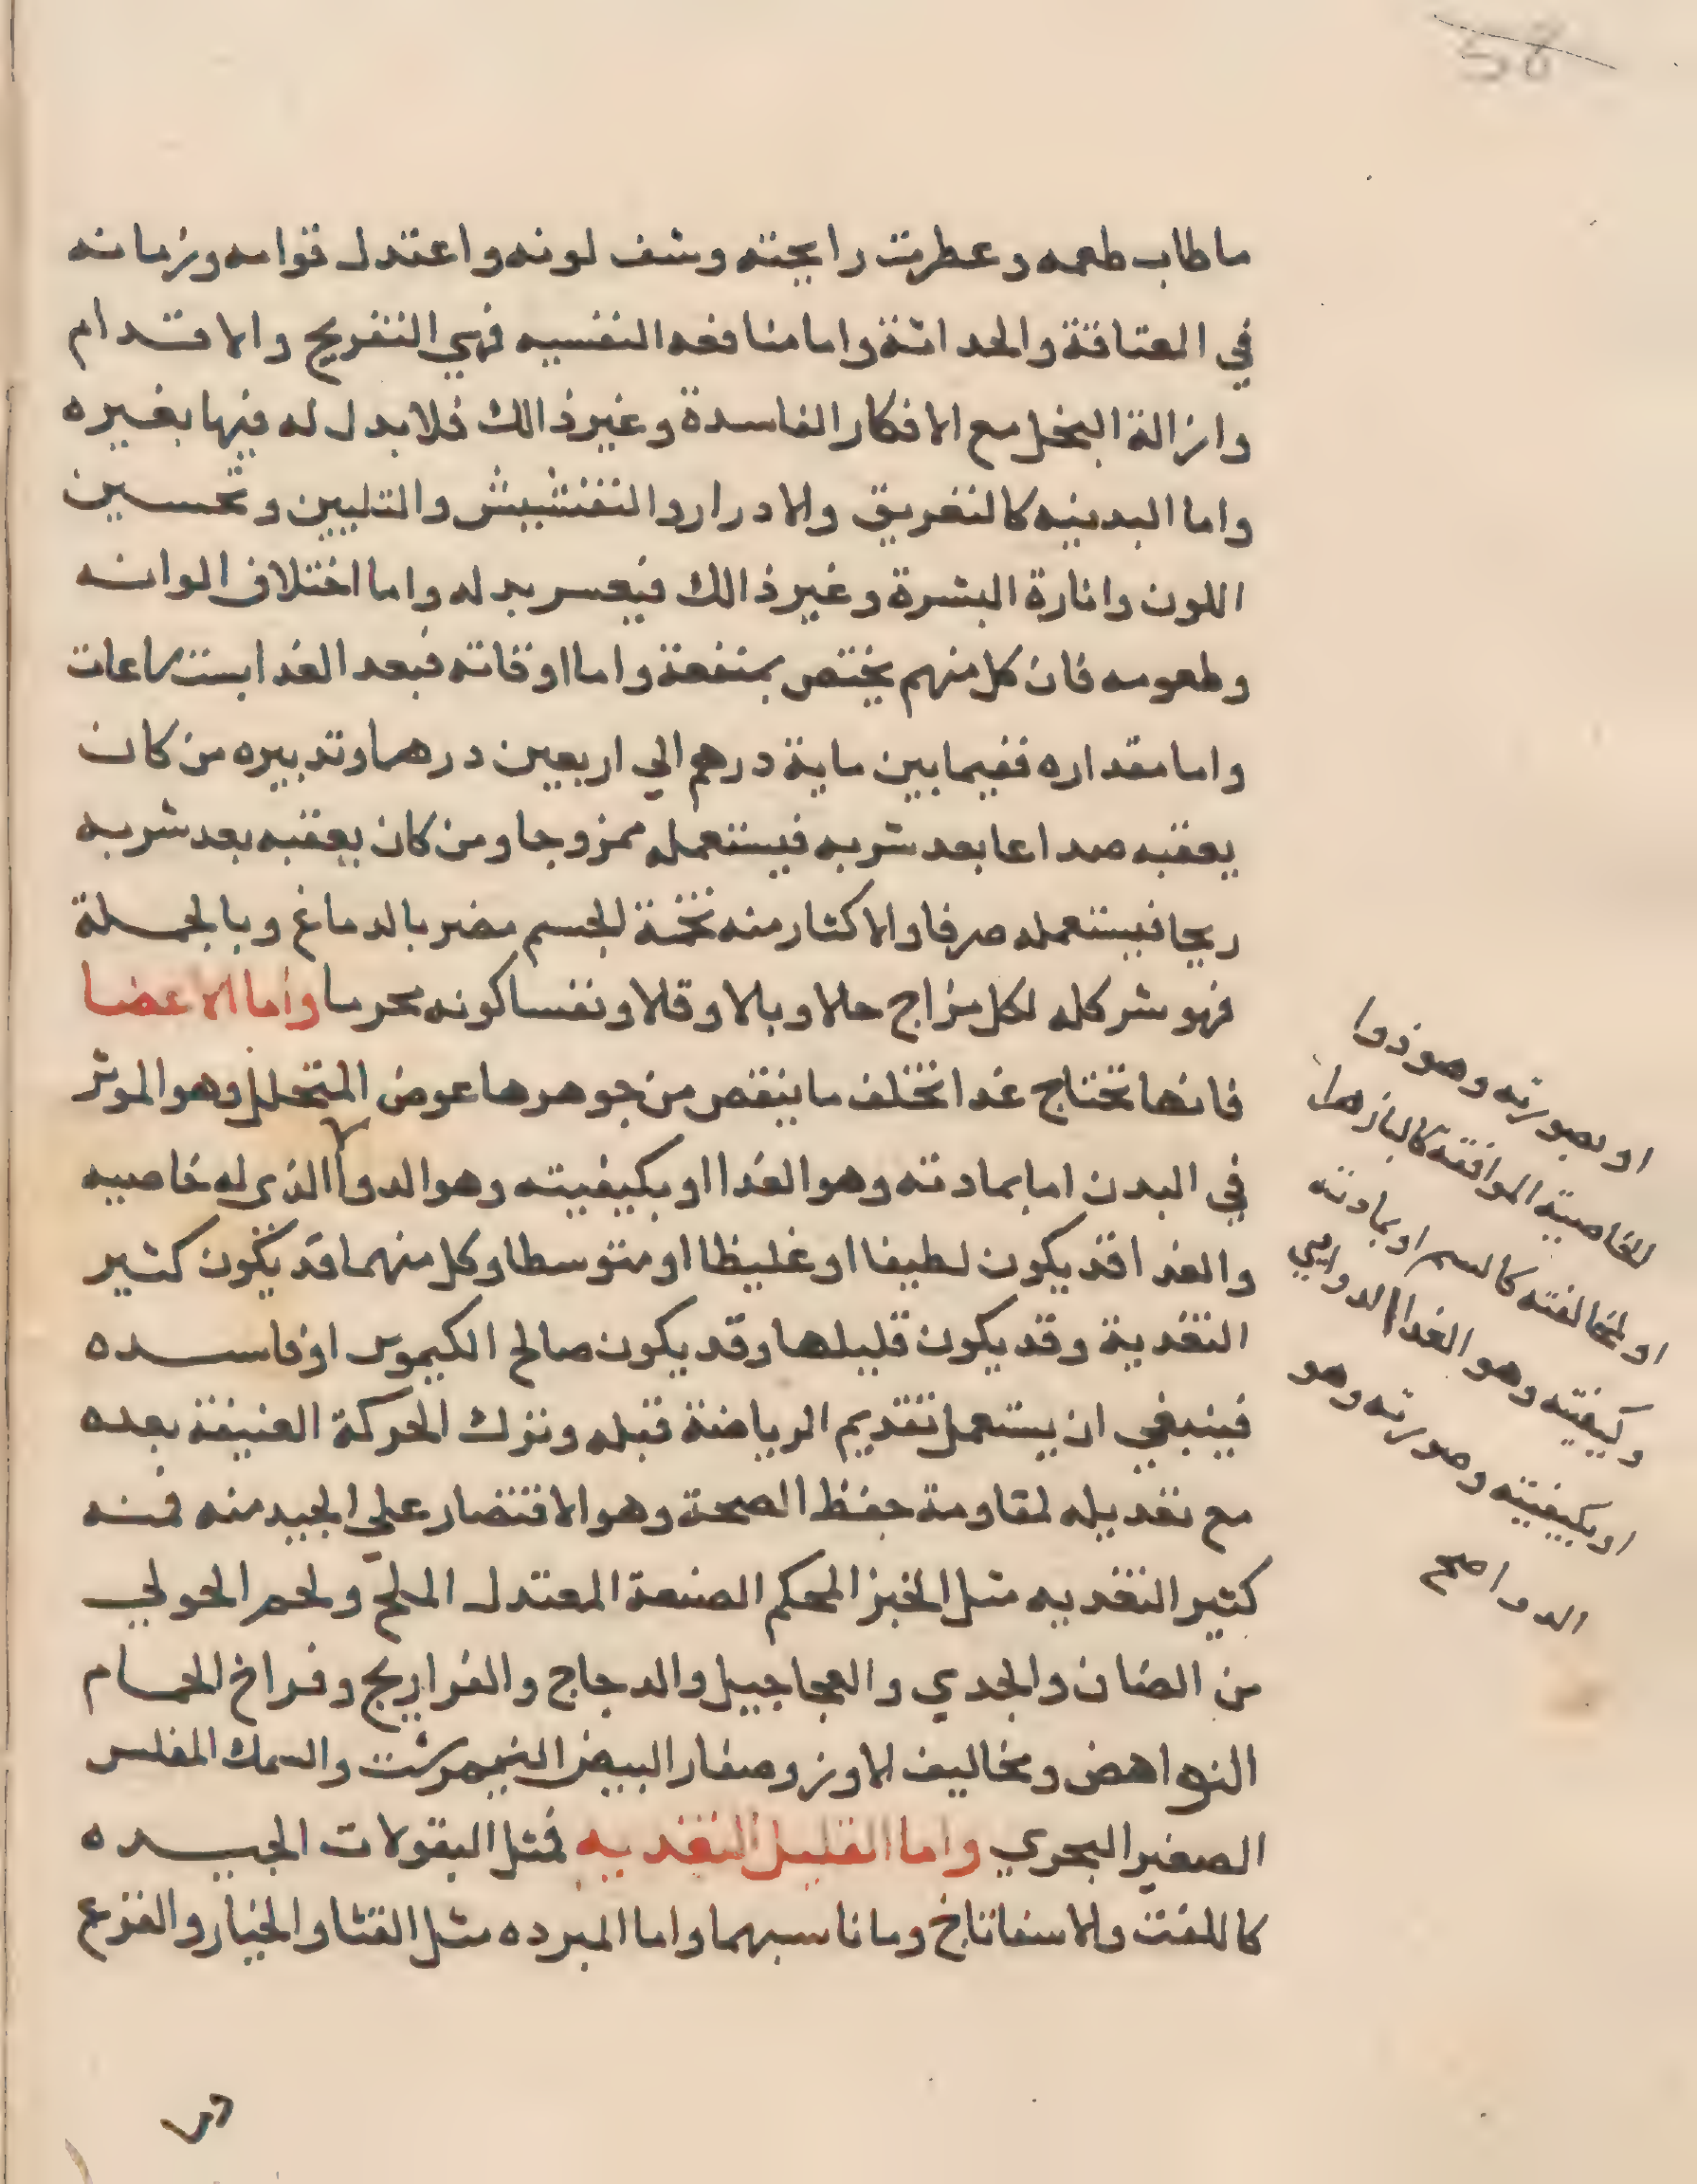 58
ما طاب طعمه وعطرت رايحته وشف لونه واعتدل قوامه وزمانه
في العتاقة والحداثة واما منافعه النفسيه فهي التفريح والاقدام
وازالة البخل مع الافكار الفاسدة وغير ذالك فلا بدل له فيها بغيره
واما البدنيه كالتعريق والادرار والتفتشيش والتليين وتحسين
اللون وانارة البشرة وغير ذالك فيعسر بدله واما اختلاف الوانه
وطعومه فان كل منهم يختص بمنفعة واما اوقاته فبعد الغدا بست ساعات
واما مقداره ففيما بين ماية درهم الي اربعين درهما وتدبيره من كان
يعقبه صداعا بعد شربه فيستعمله ممزوجا ومن كان يعقبه بعد شربه
ريحا فيستعمله صرفا والاكثار منه تخمة للجسم مضر بالدماغ وبالجملة
فهو شر كله لكل مزاج حالا وبالا وقلا ونفسا كونه محرما واما الاعضا
فانها تحتاج غدا تخلف ما ينقص من جوهرها عوض المتحلل وهو الموثر
في البدن اما بمادته وهو الغدا او بكيفيته وهو الدوا الذي له خاصيه
والغدا قد يكون لطيفا او غليظا او متوسطا وكل منهما قد يكون كثير
التغدية وقد يكون قليلها وقد يكون صالح الكيموس او فاسده
فينبغي ان يستعمل تقديم الرياضة قبله وترك الحركة العنيفة بعده
مع تعديله لمقاومة حفظ الصحة وهو الاقتصار علي الجيد منه فمنه
كثير التغديه مثل الخبز المحكم الصنعة المعتدل الملح ولحم الحولي
من الضان والجدي والعجاجيل والدجاج والفراريج وفراخ الحمام
النواهض ومخاليف الاوز وصفار البيض النيمرشت والسمك المفلس
الصغير البحري واما القليل التغديه فمثل البقولات الجيده
كاللفت والاسفاناخ وما ناسبهما واما المبرده مثل القثا والخيار والقرع
او بصورته وهو ذوا
للخاصية الموافقه كالبازهر
او لمخالفته كالسم او بمادته
وكيفيته وهو الغدا الدوايي
او بكيفيته وصورته وهو
الدوا صح